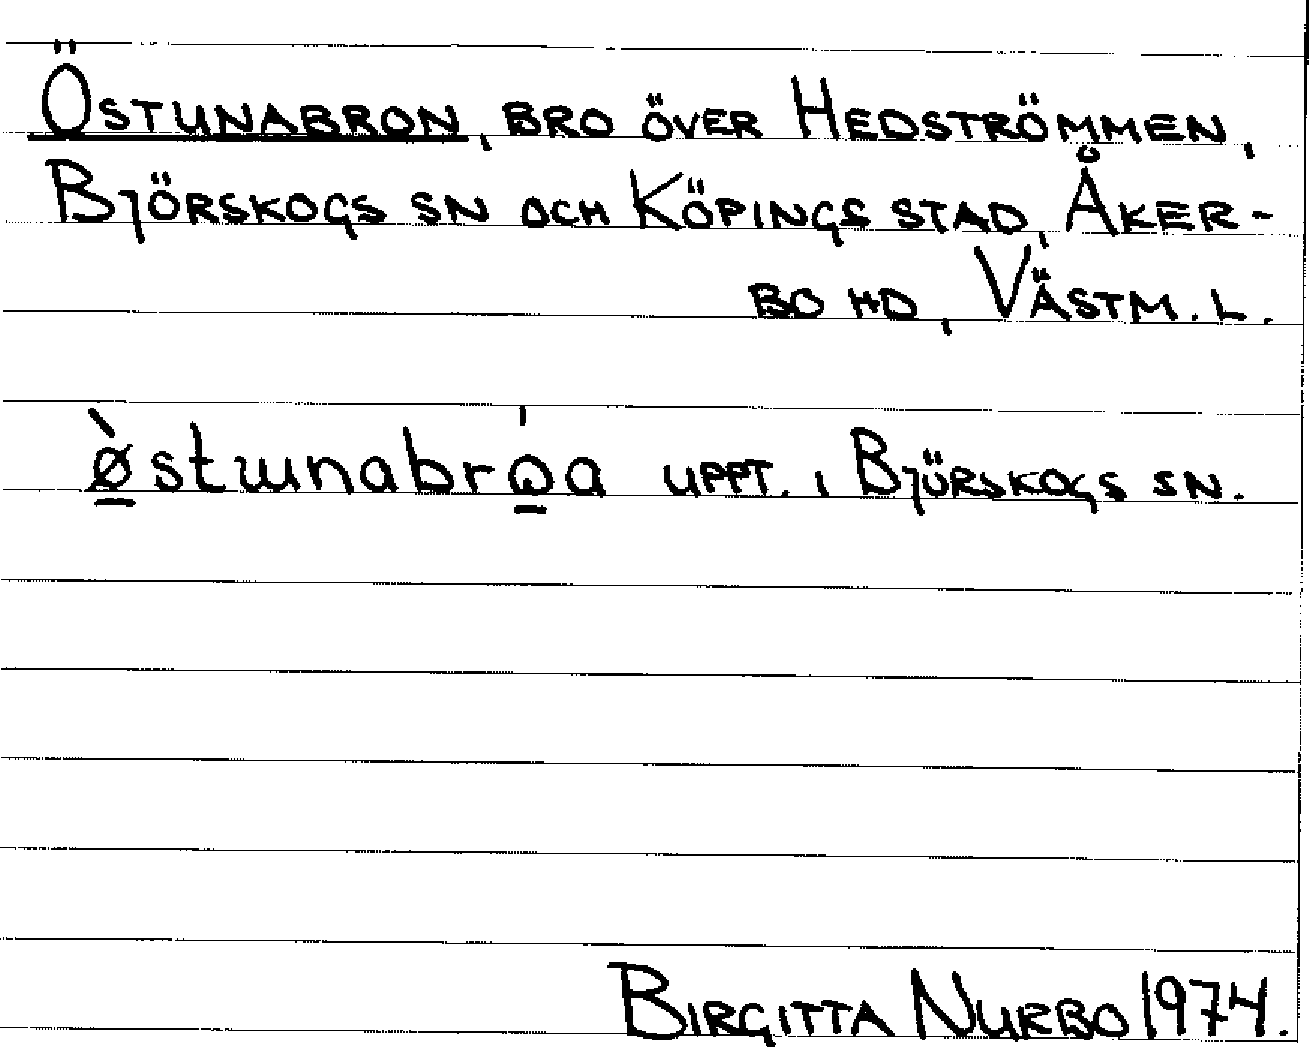 Östunabron, bro över Hedströmmen,
Björskogs sn och Köpings stad, Åker-
bo hd, Västm. l.
ø̲̀stɯnabrώ̲a uppt. i Björskogs sn.
Birgitta Nurbo 1974.